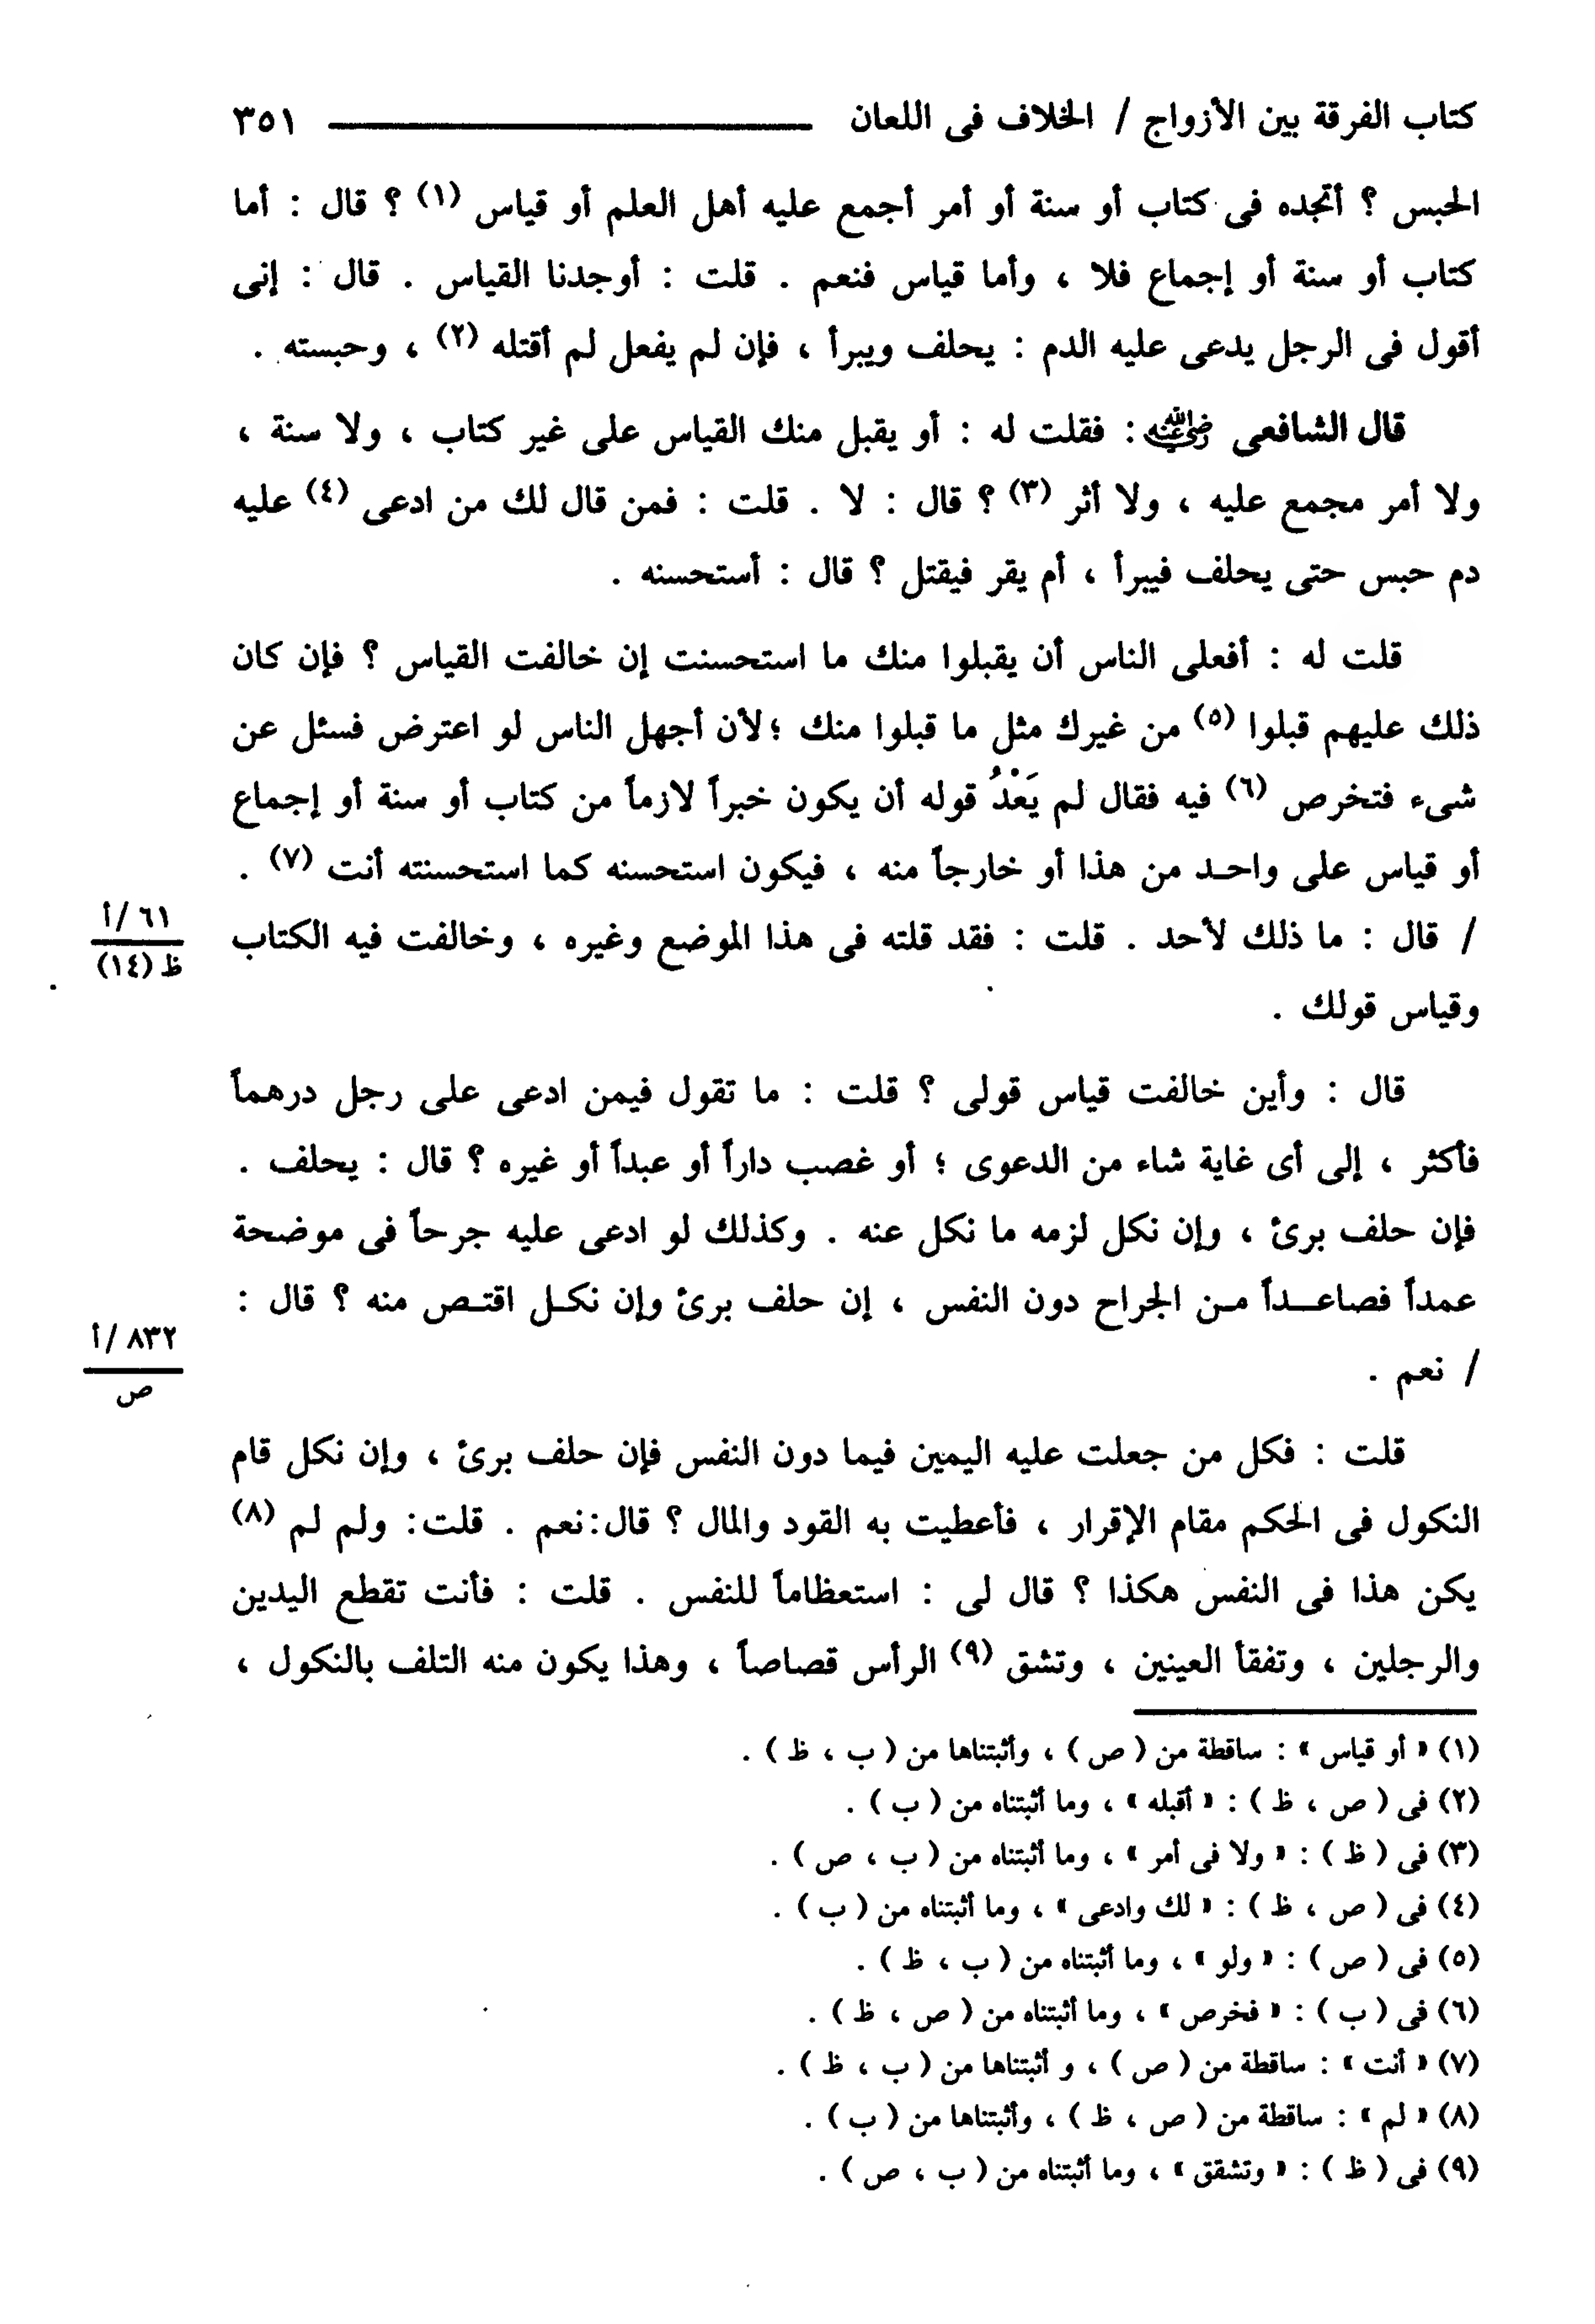 كتاب الفرقة بين الأزواج / الخلاف فى اللعان ٣٥١
الحبس ؟ أتجده فى كتاب أو سنة أو أمر أجمع عليه أهل العلم أو قياس (١) ؟ قال : أما
كتاب أو سنة أو إجماع فلا ، وأما قياس فنعم . قلت : أوجدنا القياس . قال : إنى
أقول فى الرجل يدعى عليه الدم : يحلف ويبرأ ، فإن لم يفعل لم أقتله (٢) ، وحبسته .
قال الشافعى رضي الله عنه : فقلت له : أو يقبل منك القياس على غير كتاب ، ولا سنة ،
ولا أمر مجمع عليه ، ولا أثر (٣) ؟ قال : لا . قلت : فمن قال لك من ادعى (٤) عليه
دم حبس حتى يحلف فيبرأ ، أم يقر فيقتل ؟ قال : أستحسنه .
قلت له : أفعلى الناس أن يقبلوا منك ما استحسنت إن خالفت القياس ؟ فإن كان
ذلك عليهم قبلوا (٥) من غيرك مثل ما قبلوا منك ؛ لأن أجهل الناس لو اعترض فسئل عن
شىء فتخرص (٦) فيه فقال لم يَعْدُ قوله أن يكون خبراً لازماً من كتاب أو سنة أو إجماع
أو قياس على واحد من هذا أو خارجاً منه ، فيكون استحسنه كما استحسنته أنت (٧) .
/ قال : ما ذلك لأحد . قلت : فقد قلته فى هذا الموضع وغيره ، وخالفت فيه الكتاب
٦١ /أ
ظ (١٤)
وقياس قولك .
قال : وأين خالفت قياس قولى ؟ قلت : ما تقول فيمن ادعى على رجل درهماً
فأكثر ، إلى أى غاية شاء من الدعوى ؛ أو غصب داراً أو عبداً أو غيره ؟ قال : يحلف .
فإن حلف برئ ، وإن نكل لزمه ما نكل عنه . وكذلك لو ادعى عليه جرحاً فى موضحة
عمداً فصاعداً من الجراح دون النفس ، إن حلف برئ وإن نكل اقتص منه ؟ قال :
/ نعم .
٨٣٢ /أ
ص
قلت : فكل من جعلت عليه اليمين فيما دون النفس فإن حلف برئ ، وإن نكل قام
النكول فى الحكم مقام الإقرار ، فأعطيت به القود والمال ؟ قال:نعم . قلت: ولم لم (٨)
يكن هذا فى النفس هكذا ؟ قال لى : استعظاماً للنفس . قلت : فأنت تقطع اليدين
والرجلين ، وتفقأ العينين ، وتشق (٩) الرأس قصاصاً ، وهذا يكون منه التلف بالنكول ،
(١) « أو قياس » : ساقطة من ( ص ) ، وأثبتناها من ( ب ، ظ ) .
(٢) فى ( ص ، ظ ) : « أقبله » ، وما أثبتناه من ( ب ) .
(٣) فى ( ظ ) : « ولا فى أمر » ، وما أثبتناه من ( ب ، ص ) .
(٤) فى ( ص ، ظ ) : « لك وادعى » ، وما أثبتناه من ( ب ) .
(٥) فى ( ص ) : « ولو » ، وما أثبتناه من ( ب ، ظ ) .
(٦) فى ( ب ) : « فخرص » ، وما أثبتناه من ( ص ، ظ ) .
(٧) « أنت » : ساقطة من ( ص ) ، و أثبتناها من ( ب ، ظ ) .
(٨) « لم » : ساقطة من ( ص ، ظ ) ، وأثبتناها من ( ب ) .
(٩) فى ( ظ ) : « وتشقق » ، وما أثبتناه من ( ب ، ص ) .